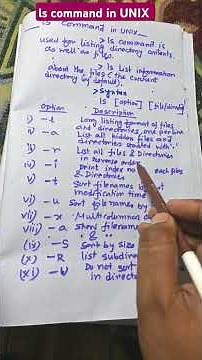 ls command in UNIX
ls command in UNIX
used for listing directory contents
> ls command is
as well as files.
> ls list information
about the files (the current
directory by default).
> Syntax
ls [option] [file/dirs]
Option Description
i) -l Long listing format of files
and directories, one per line
ii) -a List all hidden files and
directories started with '.'
iii) -r List all files & Directories
in reverse order
iv) -i print index no each files
& Directories
v) -t Sort filenames by
modification time
vi) -u Sort filenames by
vii) -x Multicolumn
viii) -a show filename
'.' & '..'
(ix) -S Sort by size
(x) -R List subdirec
(xi) -U Do not sort
in direct